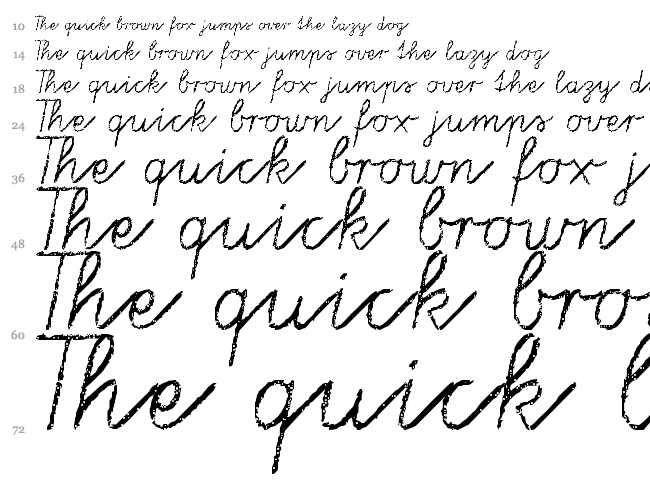 10 The quick brown fox jumps over the lazy dog
14 The quick brown fox jumps over the lazy dog
18 The quick brown fox jumps over the lazy d
24 The quick brown fox jumps over
36 The quick brown fox j
48 The quick brown
60 The quick bro
72 The quick